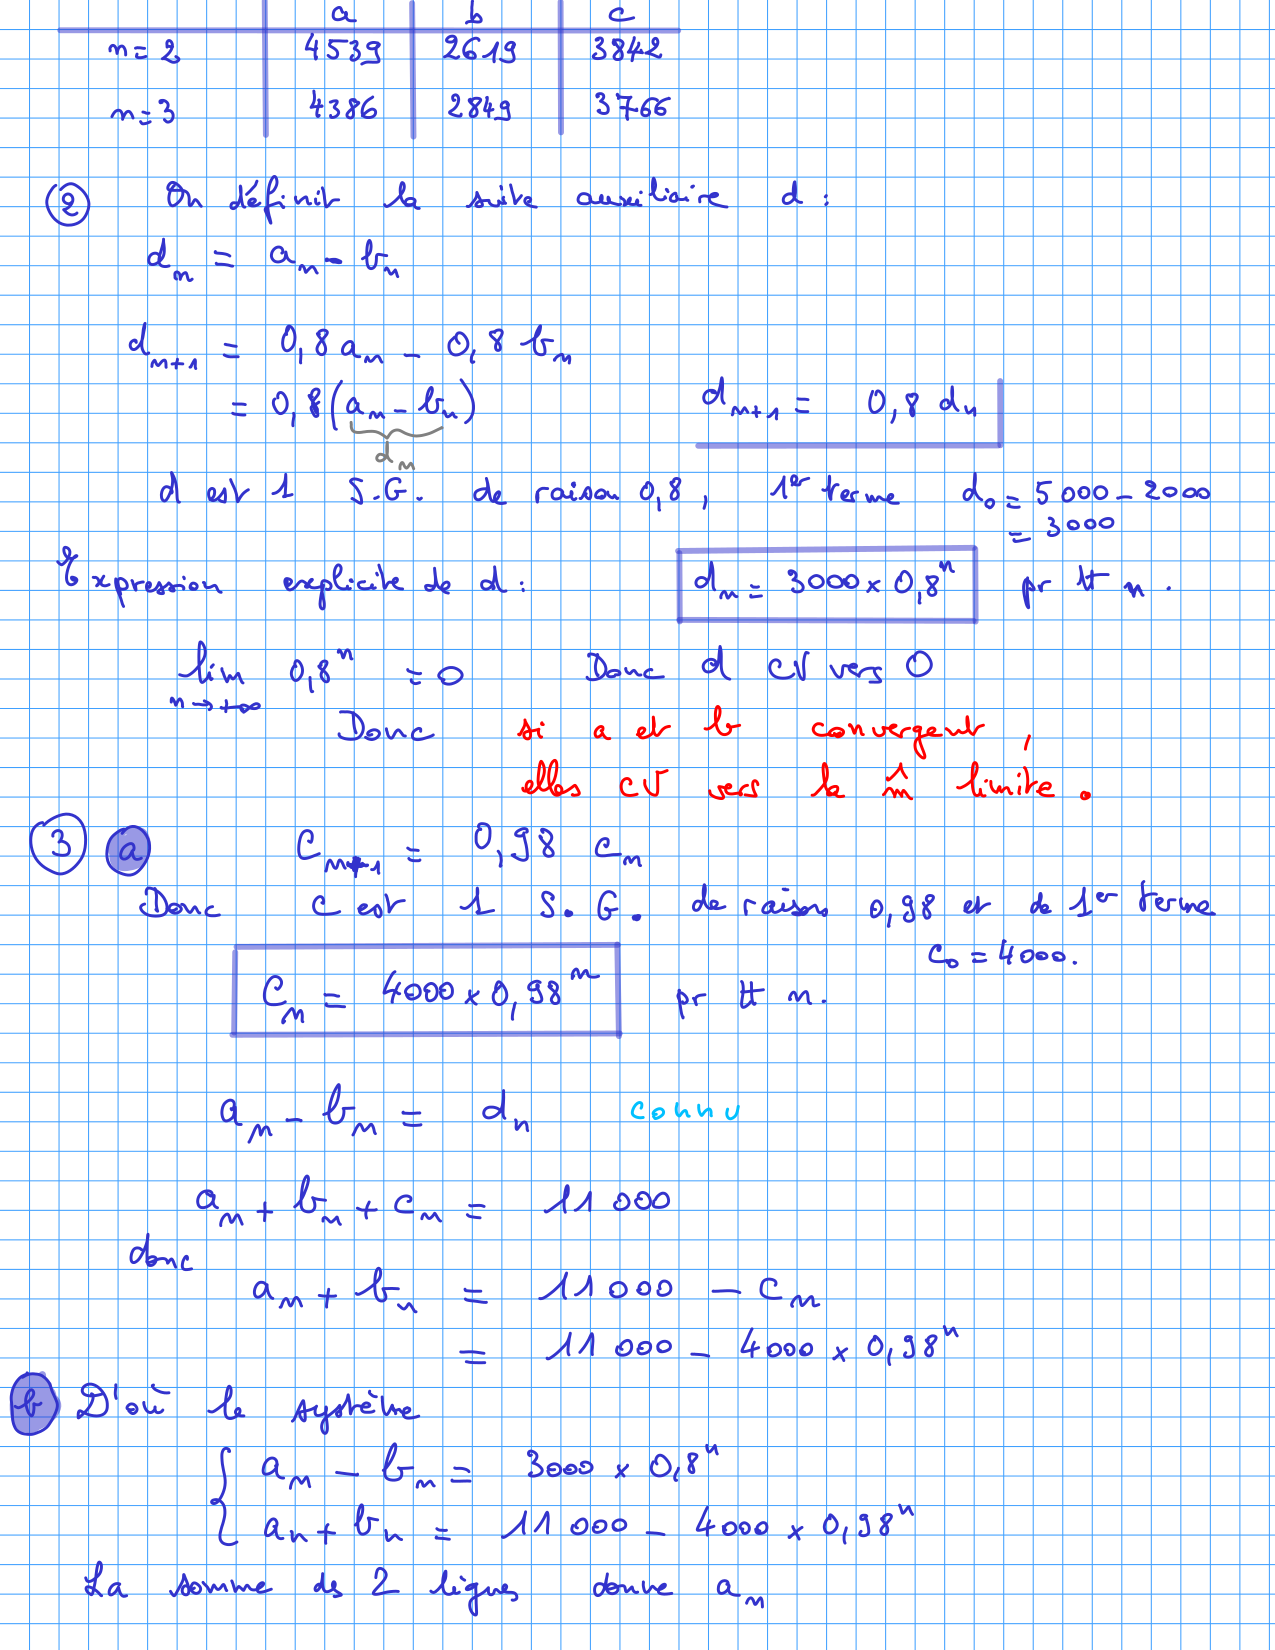 a b c
n = 2 4539 2619 3842
n = 3 4386 2849 3766
② On définit la suite auxiliaire d :
dₙ = aₙ - bₙ
dₙ₊₁ = 0,8 aₙ - 0,8 bₙ
= 0,8 (aₙ - bₙ) dₙ₊₁ = 0,8 dₙ
dₙ
d est 1 S.G. de raison 0,8, 1er terme d₀ = 5000 - 2000
= 3000
Expression explicite de d : dₙ = 3000 × 0,8ⁿ pr tt n.
lim 0,8ⁿ = 0 Donc d CV vers 0
n → +∞
Donc si a et b convergent,
elles CV vers la m̂ limite.
③ a cₙ₊₁ = 0,98 cₙ
Donc c est 1 S.G. de raison 0,98 et de 1er terme
c₀ = 4000.
Cₙ = 4000 × 0,98ⁿ pr tt n.
aₙ - bₙ = dₙ connu
aₙ + bₙ + cₙ = 11 000
donc
aₙ + bₙ = 11 000 - cₙ
= 11 000 - 4000 × 0,98ⁿ
b D'où le système
{ aₙ - bₙ = 3000 × 0,8ⁿ
aₙ + bₙ = 11 000 - 4000 × 0,98ⁿ
La somme des 2 lignes donne aₙ